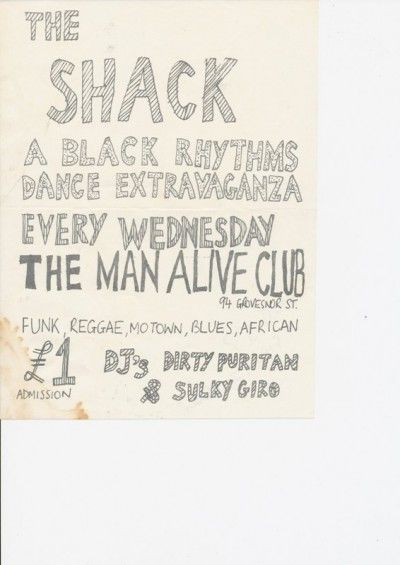 THE
SHACK
A BLACK RHYTHMS
DANCE EXTRAVAGANZA
EVERY WEDNESDAY
THE MAN ALIVE CLUB
94 GROVESNOR ST.
FUNK, REGGAE, MOTOWN, BLUES, AFRICAN
£1 DJ'S DIRTY PURITAN
ADMISSION & SULKY GIRO